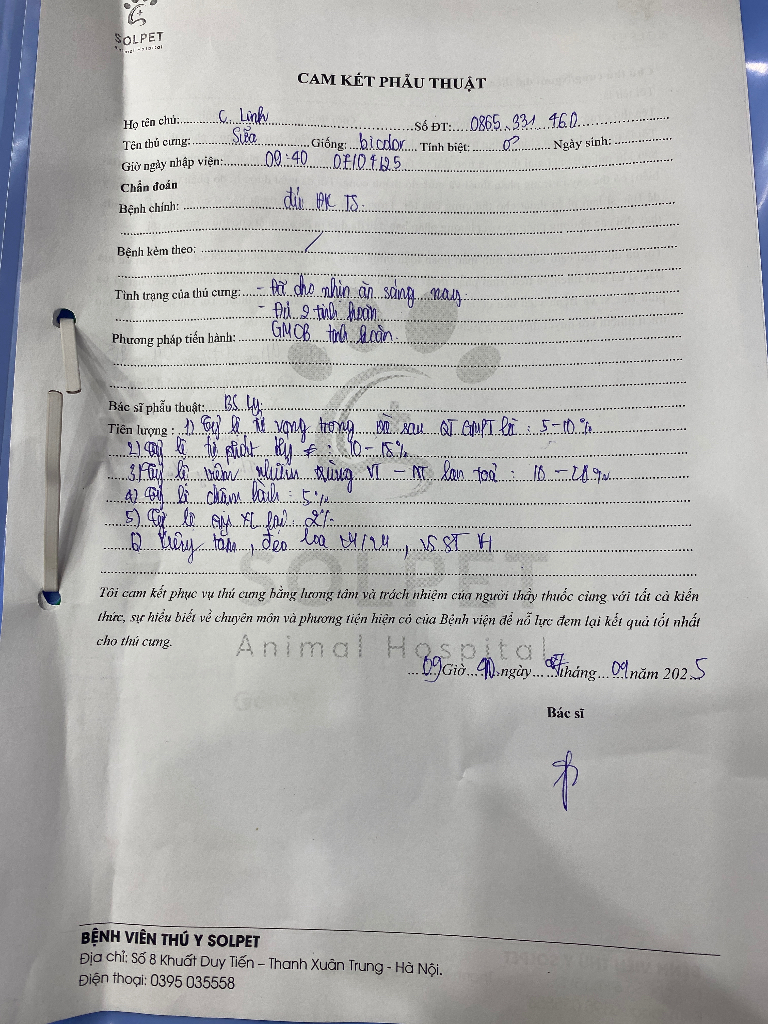 SOLPET
Animal Hospital
CAM KẾT PHẪU THUẬT
Họ tên chủ: C. Linh Số ĐT: 0865.331 460
Tên thú cưng: Sữa Giống: bicolor Tính biệt: ♂ Ngày sinh:
Giờ ngày nhập viện: 09:40
Chẩn đoán
Bệnh chính: TS.
Bệnh kèm theo: /
Tình trạng của thú cưng: - Đã cho nhịn ăn sáng nay.
- Đủ 2 tinh hoàn
Phương pháp tiến hành: tinh hoàn.
Bác sĩ phẫu thuật: BS. Ly.
Tiên lượng: 1) Tỷ lệ tử vong trong và sau QT GMPT là: 5-10%
2) Tỷ lệ tự phát : 10-15%
3) Tỷ lệ viêm nhiễm trùng VT - NT lan toả: 10
4) Tỷ lệ chậm lành: 5%
5) Tỷ lệ lại: 2%
6) Kiêng tắm, đeo loa 24/24, VSST
Tôi cam kết phục vụ thú cưng bằng lương tâm và trách nhiệm của người thầy thuốc cùng với tất cả kiến
thức, sự hiểu biết về chuyên môn và phương tiện hiện có của Bệnh viện để nỗ lực đem lại kết quả tốt nhất
cho thú cưng.
SOLPET
Animal Hospital
09 Giờ 40 ngày 07 tháng 09 năm 2025
Bác sĩ
BỆNH VIÊN THÚ Y SOLPET
Địa chỉ: Số 8 Khuất Duy Tiến – Thanh Xuân Trung - Hà Nội.
Điện thoại: 0395 035558